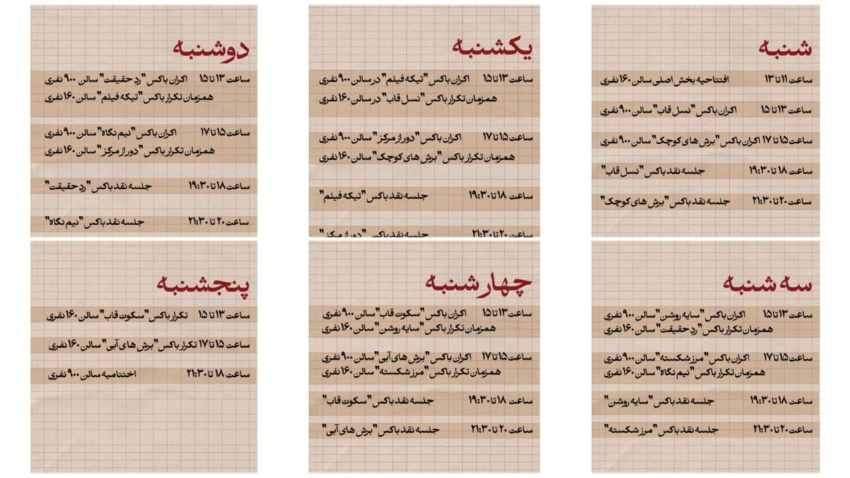 شنبه
ساعت ۱۱ تا ۱۳ افتتاحیه بخش اصلی سالن ۱۶۰ نفری
ساعت ۱۳ تا ۱۵ اکران باکس "نسل قاب" سالن ۹۰۰ نفری
ساعت ۱۵ تا ۱۷ اکران باکس "برش های کوچک" سالن ۹۰۰ نفری
ساعت ۱۸ تا ۱۹:۳۰ جلسه نقد باکس "نسل قاب"
ساعت ۲۰ تا ۲۱:۳۰ جلسه نقد باکس "برش های کوچک"
یکشنبه
ساعت ۱۳ تا ۱۵ اکران باکس "تیکه فیلم" در سالن ۹۰۰ نفری
همزمان تکرار باکس "نسل قاب" در سالن ۱۶۰ نفری
ساعت ۱۵ تا ۱۷ اکران باکس "دور از مرکز" سالن ۹۰۰ نفری
همزمان تکرار باکس "برش های کوچک" سالن ۱۶۰ نفری
ساعت ۱۸ تا ۱۹:۳۰ جلسه نقد باکس "تیکه فیلم"
ساعت ۲۰ تا ۲۱:۳۰ جلسه نقد باکس "دور از مرکز"
دوشنبه
ساعت ۱۳ تا ۱۵ اکران باکس "رد حقیقت" سالن ۹۰۰ نفری
همزمان تکرار باکس "تیکه فیلم" سالن ۱۶۰ نفری
ساعت ۱۵ تا ۱۷ اکران باکس "نیم نگاه" سالن ۹۰۰ نفری
همزمان تکرار باکس "دور از مرکز" سالن ۱۶۰ نفری
ساعت ۱۸ تا ۱۹:۳۰ جلسه نقد باکس "رد حقیقت"
ساعت ۲۰ تا ۲۱:۳۰ جلسه نقد باکس "نیم نگاه"
سه شنبه
ساعت ۱۳ تا ۱۵ اکران باکس "سایه روشن" سالن ۹۰۰ نفری
همزمان تکرار باکس "رد حقیقت" سالن ۱۶۰ نفری
ساعت ۱۵ تا ۱۷ اکران باکس "مرز شکسته" سالن ۹۰۰ نفری
همزمان تکرار باکس "نیم نگاه" سالن ۱۶۰ نفری
ساعت ۱۸ تا ۱۹:۳۰ جلسه نقد باکس "سایه روشن"
ساعت ۲۰ تا ۲۱:۳۰ جلسه نقد باکس "مرز شکسته"
چهارشنبه
ساعت ۱۳ تا ۱۵ اکران باکس "سکوت قاب" سالن ۹۰۰ نفری
همزمان تکرار باکس "سایه روشن" سالن ۱۶۰ نفری
ساعت ۱۵ تا ۱۷ اکران باکس "برش های آبی" سالن ۹۰۰ نفری
همزمان تکرار باکس "مرز شکسته" سالن ۱۶۰ نفری
ساعت ۱۸ تا ۱۹:۳۰ جلسه نقد باکس "سکوت قاب"
ساعت ۲۰ تا ۲۱:۳۰ جلسه نقد باکس "برش های آبی"
پنجشنبه
ساعت ۱۳ تا ۱۵ تکرار باکس "سکوت قاب" سالن ۱۶۰ نفری
ساعت ۱۵ تا ۱۷ تکرار باکس "برش های آبی" سالن ۱۶۰ نفری
ساعت ۱۸ تا ۲۱:۳۰ اختتامیه سالن ۹۰۰ نفری